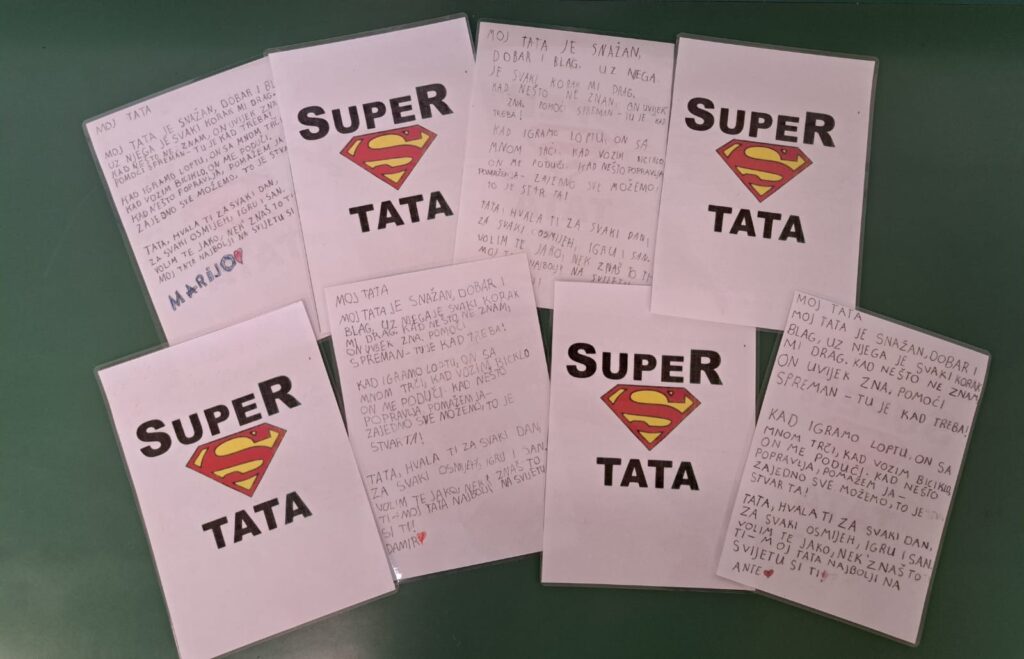 MOJ TATA
MOJ TATA JE SNAŽAN, DOBAR I
UZ NJEGA JE SVAKI KORAK MI DRAG.
KAD NEŠTO NE ZNAM, ON UVIJEK ZNA
POMOĆI SPREMAN - TU JE KAD TREBA!
KAD IGRAMO LOPTU, ON SA MNOM TRČI,
KAD VOZIM BICIKL, ON ME PODUČI.
KAD NEŠTO POPRAVLJA, POMAŽEM JA
ZAJEDNO SVE MOŽEMO, TO JE
TATA, HVALA TI ZA SVAKI DAN,
ZA SVAKI OSMIJEH, IGRU I SAN.
VOLIM TE JAKO, NEK' ZNAŠ TO TI
MOJ TATA NAJBOLJI NA SVIJETU SI
MARIJO
SUPER
TATA
MOJ TATA JE SNAŽAN,
DOBAR I BLAG. UZ NJEGA
JE SVAKI KORAK MI DRAG.
KAD NEŠTO NE ZNAM, ON UVIJEK
ZNA. POMOĆ SPREMAN - TU JE KAD
TREBA!
KAD IGRAMO LOPTU, ON SA
MNOM TRČI. KAD VOZIM BICIKLO,
ON ME PODUČI. KAD NEŠTO POPRAVLJA
POMAŽEM JA - ZAJEDNO SVE MOŽEMO
TO JE TA!
TATA, HVALA TI ZA SVAKI DAN,
ZA SVAKI OSMIJEH, IGRU I SAN.
VOLIM TE JAKO, NEK' ZNAŠ TO TI
MOJ TATA NAJBOLJI NA
SUPER
TATA
SUPER
TATA
MOJ TATA
MOJ TATA JE SNAŽAN, DOBAR I
BLAG, UZ NJEGA JE SVAKI KORAK
MI DRAG. KAD NEŠTO NE ZNAM,
ON UVIJEK ZNA, POMOĆI
SPREMAN - TU JE KAD TREBA!
KAD IGRAMO LOPTU, ON SA
MNOM TRČI, KAD VOZIM BICIKLO
ON ME PODUČI. KAD NEŠTO
POPRAVLJA, POMAŽEM JA -
ZAJEDNO SVE MOŽEMO, TO JE
STVAR TA!
TATA, HVALA TI ZA SVAKI DAN,
ZA SVAKI OSMIJEH, IGRU I SAN.
VOLIM TE JAKO, NEK' ZNAŠ TO
TI - MOJ TATA NAJBOLJI NA SVIJETU
SI TI!
DAMIR
SUPER
TATA
MOJ TATA
MOJ TATA JE SNAŽAN, DOBAR I
BLAG, UZ NJEGA JE SVAKI KORAK
MI DRAG. KAD NEŠTO NE ZNAM
ON UVIJEK ZNA, POMOĆI
SPREMAN - TU JE KAD TREBA!
KAD IGRAMO LOPTU, ON SA
MNOM TRČI, KAD VOZIM BICIKLO,
ON ME PODUČI. KAD NEŠTO
POPRAVLJA, POMAŽEM JA -
ZAJEDNO SVE MOŽEMO, TO JE
STVAR TA!
TATA, HVALA TI ZA SVAKI DAN,
ZA SVAKI OSMIJEH, IGRU I SAN.
VOLIM TE JAKO, NEK' ZNAŠ TO
TI - MOJ TATA NAJBOLJI NA
SVIJETU SI TI!
ANTE